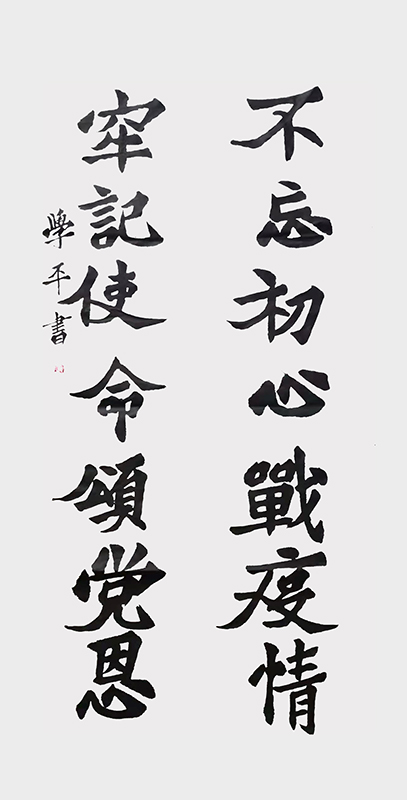 不忘初心戰疫情
牢記使命頌党恩
學平書